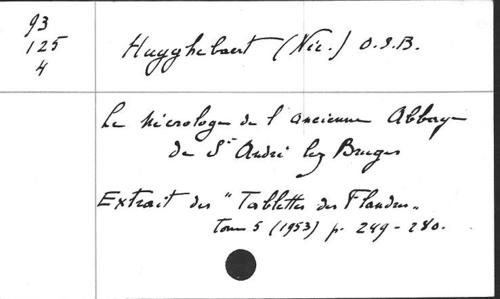 93
125
4
Huyghebaert (Nic.) O.S.B.
Le Nécrologe de l'ancienne Abbaye
de St André lez Bruges
Extrait des "Tablettes des Flandres"
Tome 5 (1953) p. 249-280.